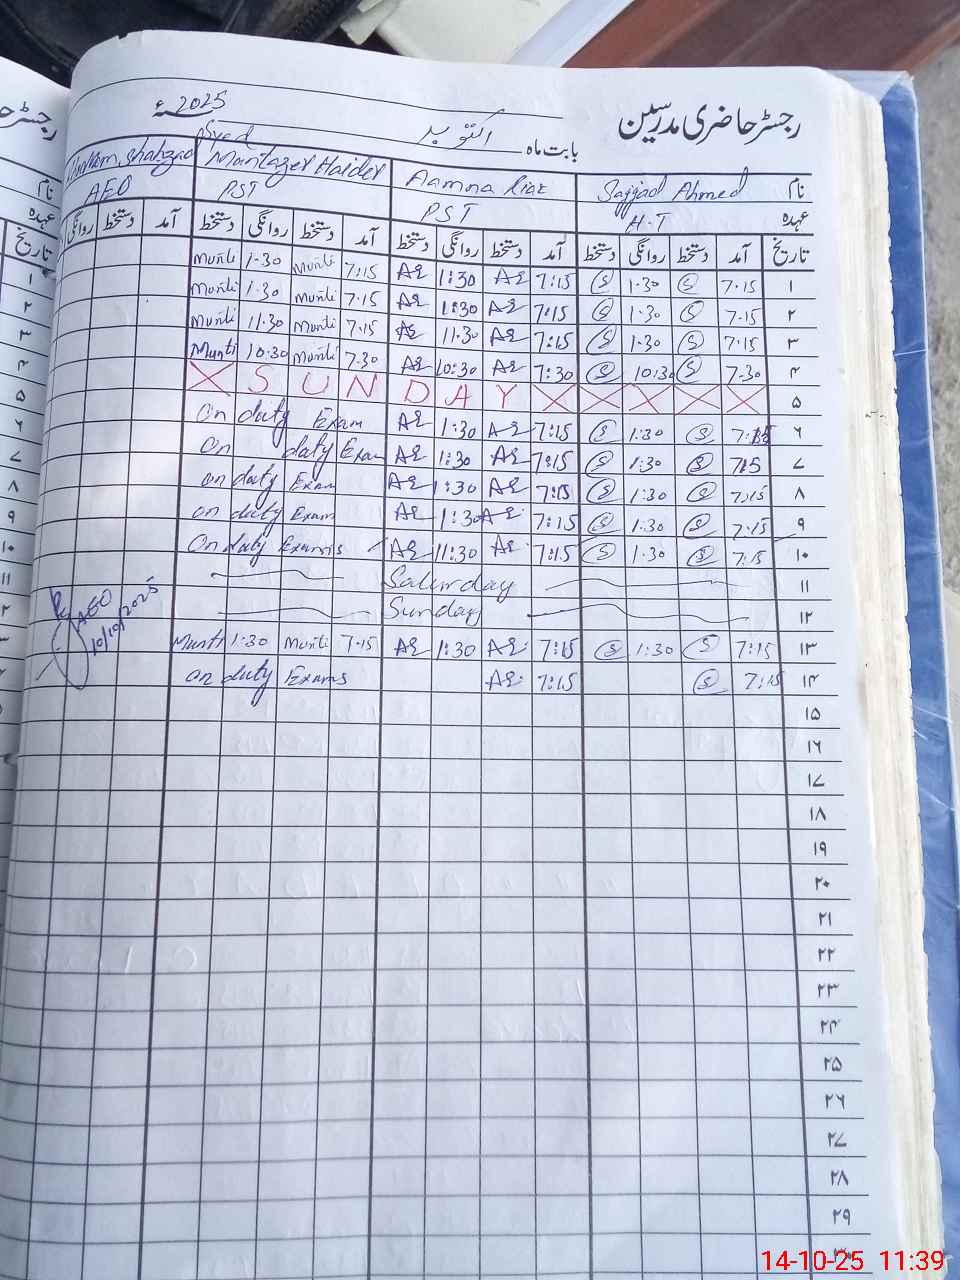 رجسٹر حاضری مدرسین
بابت ماہ اکتوبر 2025ء
نام Sajjad Ahmed Aamna Riaz Syed Muntazer Haider Shahzad
عہدہ H.T PST PST AEO
تاریخ آمد دستخط روانگی دستخط آمد دستخط روانگی دستخط آمد دستخط روانگی دستخط آمد دستخط روانگی
۱ 7.15 S 1.30 S 7:15 AR 1:30 AR 7:15 Munti 1.30 Munti
۲ 7.15 S 1.30 S 7:15 AR 1:30 AR 7.15 Munti 1.30 Munti
۳ 7.15 S 1.30 S 7:15 AR 11.30 AR 7.15 Munti 11.30 Munti
۴ 7.30 S 10.30 S 7:30 AR 10:30 AR 7.30 Munti 10.30 Munti
۵ X S U N D A Y X X X X X
۶ 7:15 S 1:30 S 7:15 AR 1:30 AR On duty Exam
۷ 7:15 S 1:30 S 7:15 AR 1:30 AR On duty Exam
۸ 7:15 S 1:30 S 7:15 AR 1:30 AR on duty Exam
۹ 7:15 S 1:30 S 7:15 AR 1:30 AR on duty Exam
۱۰ 7:15 S 1:30 S 7:15 AR 11:30 AR On duty Exams
۱۱ Saturday
۱۲ Sunday
۱۳ 7:15 S 1:30 S 7:15 AR 1:30 AR 7.15 Munti 1:30 Munti
۱۴ 7:15 S 7:15 AR on duty Exams
AEO
10/10/2025
۱۵
۱۶
۱۷
۱۸
۱۹
۲۰
۲۱
۲۲
۲۳
۲۴
۲۵
۲۶
۲۷
۲۸
۲۹
۳۰
رجسٹر حا
نام
عہدہ
تاریخ
۱
۲
۳
۴
۵
۶
۷
۸
۹
۱۰
۱۱
14-10-25 11:39